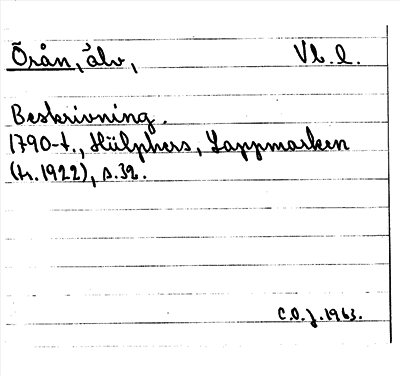 Örån, älv, Vb. l.
Beskrivning.
1790-t., Hülphers, Lappmarken
(tr. 1922), s. 32.
C.O.J. 1963.